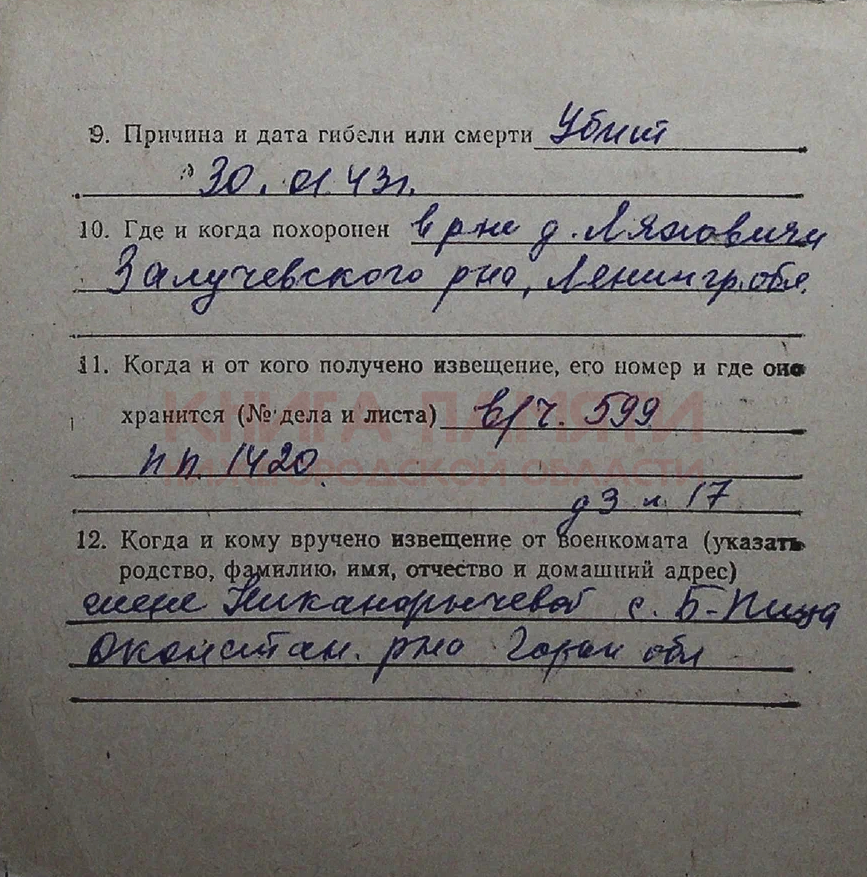 9. Причина и дата гибели или смерти Убит
30. 01 43г.
10. Где и когда похоронен в р-не д. Ляховичи
Залучевского р-на, Ленингр. обл.
11. Когда и от кого получено извещение, его номер и где оно
хранится (№ дела и листа) в/ч. 599
КНИГА ПАМЯТИ
п п. 1420
НИЖЕГОРОДСКОЙ ОБЛАСТИ
д 3 л. 17
12. Когда и кому вручено извещение от военкомата (указать
родство, фамилию, имя, отчество и домашний адрес)
жене с. Б-Пица
р-на Горьк обл